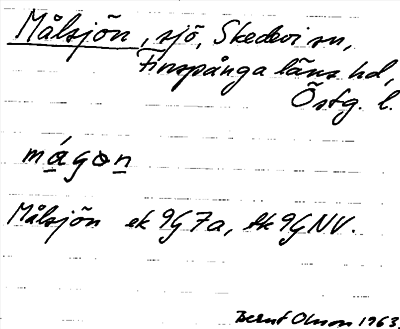 Målsjön, sjö, Skedevi sn,
Finspånga läns hd,
Östg. l.
mágon
Målsjön ek 9G7a, tk 9GNV.
Bernt Olsson 1963.